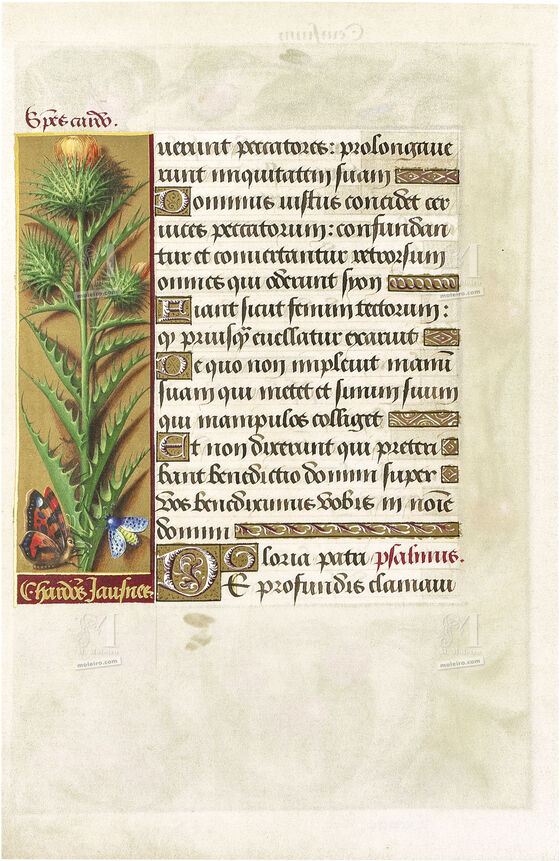 Spēs cardō.
uerunt peccatores: prolongaue
runt iniquitatem suam
Dominus iustus concidet cer
uices peccatorum: confundan
tur et conuertantur retrorsum
omnes qui oderunt syon
Fiant sicut fenum tectorum:
q priusq̄ euellatur exaruit
De quo non impleuit manū
suam qui metet et sinum suum
qui manipulos colliget
Et non dixerunt qui preteri
bant benedictio domini super
vos benediximus vobis in noīe
domini
Gloria patri psalmus.
DE profundis clamaui
Chardōs Jausnes
M
M. Moleiro
moleiro.com
M
M. Moleiro
moleiro.com
M
M. Moleiro
moleiro.com
M
M. Moleiro
moleiro.com